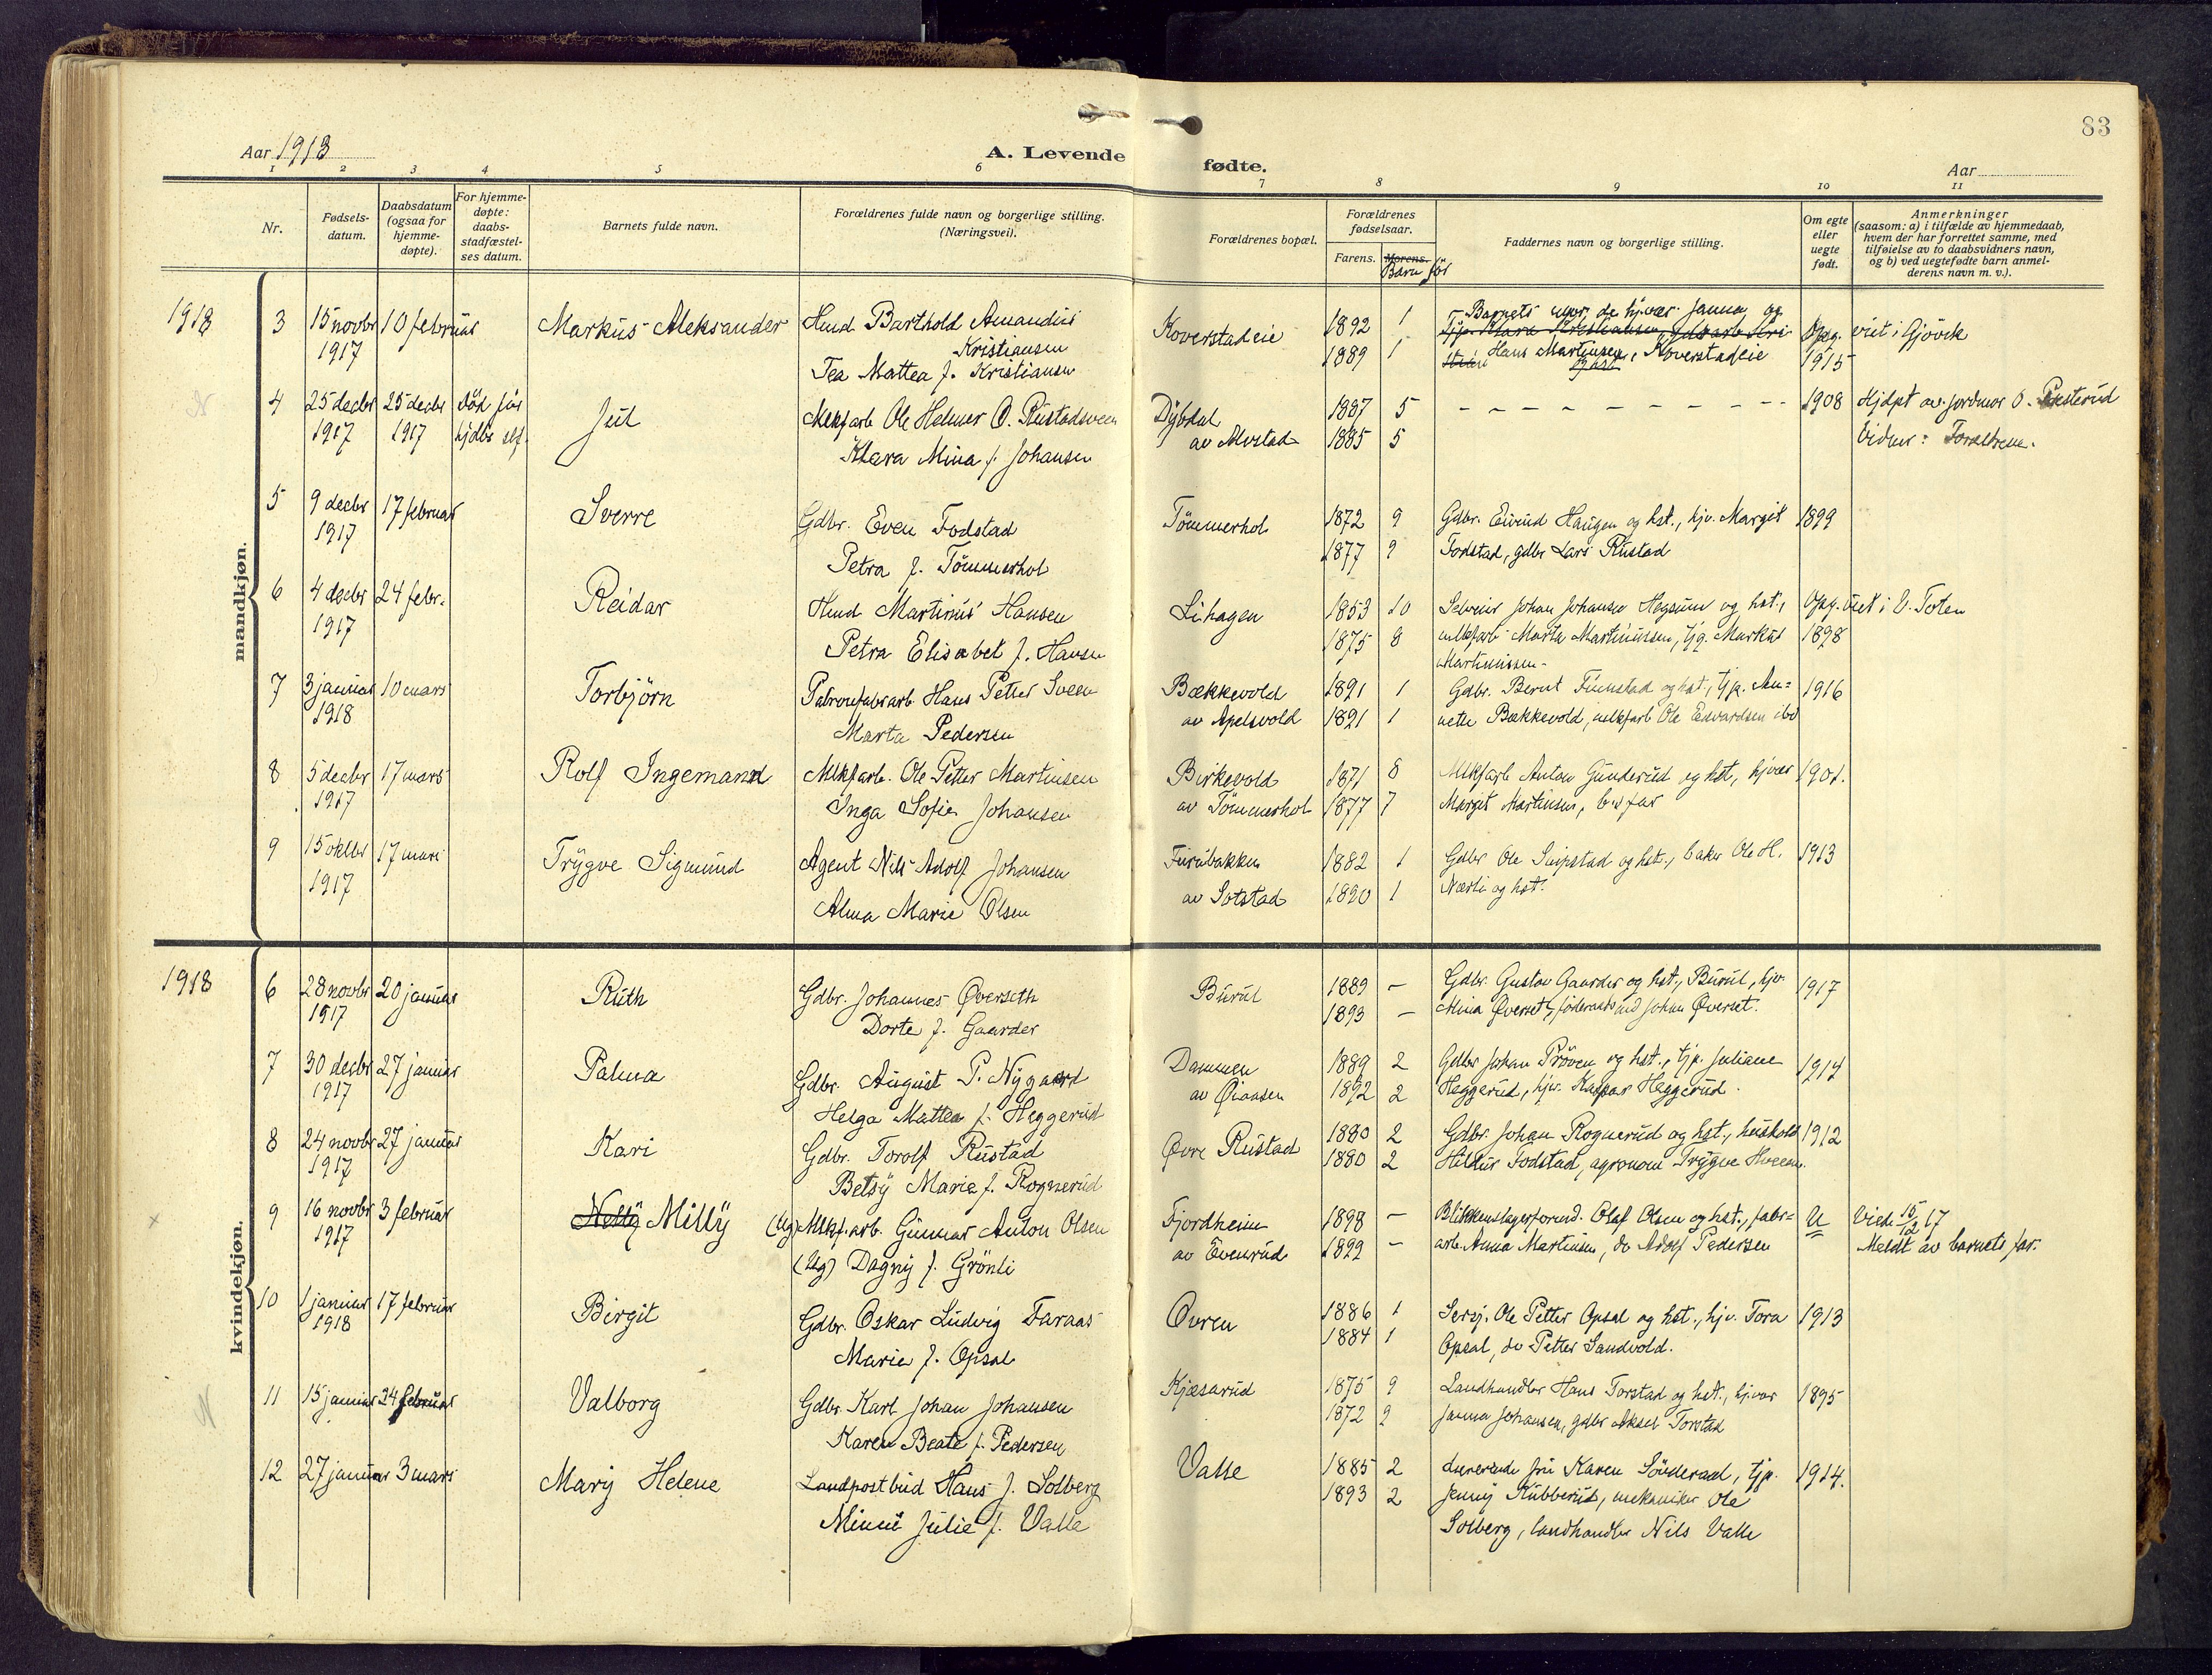 83
Aar 1918
A. Levende fødte.
Aar
1 2 3 4 5 6 7 8 9 10 11
Nr.
Fødsels-
datum.
Daabsdatum
(ogsaa for
hjemme-
døpte).
For hjemme-
døpte:
daabs-
stadfæstel-
ses datum.
Barnets fulde navn.
Forældrenes fulde navn og borgerlige stilling.
(Næringsvei).
Forældrenes bopæl.
Forældrenes
fødselsaar.
Farens. Morens.
Barn før
Faddernes navn og borgerlige stilling.
Om egte
eller
uegte
født.
Anmerkninger
(saasom: a) i tilfælde av hjemmedaab,
hvem der har forrettet samme, med
tilføielse av to daabsvidners navn,
og b) ved uegtefødte barn anmel-
derens navn m. v.).
mandkjøn.
1918
3 15 novbr 10 februar Markus Aleksander Hmd Barthold Amandus
1917 Kristiansen
Tea Mattea f. Kristiansen
Koverstadeie 1892 1 Barnets mor, de hjvær. Janna og
1889 1 Hans Martinsen, Koverstadeie
Opg. viet i Gjøvik
1915
4 25 decbr 25 decbr død før Jul Mlkfarb Ole Helmer O. Rustadsveen
1917 1917 hjdbs stf. Klara Mina f. Johansen
Dybdal 1887 5 1908 Hjdpt av jordmor O.
av Alvstad 1885 5 Vidner: Forældrene.
5 9 decbr 17 februar Sverre Gdbr. Even Fodstad
1917 Petra f. Tömmerhol
Tömmerhol 1872 9 Gdbr. Eivind Haugen og hst., hjv. Margit 1899
1877 9 Fodstad, gdbr Lars Rustad
6 4 decbr 24 febr. Reidar Hmd Martinus Hansen
1917 Petra Elisabet f. Hansen
Lihagen 1853 10 Selveier Johan Johansen Hegsum og hst., Opg. viet i V. Toten
1875 8 mlkfarb Marta Martinussen, tjg. Markus 1898
Martinussen
7 3 januar 10 mars Torbjörn Patronfabrarb. Hans Petter Sveen
1918 Marta Pedersen
Bækkevold 1891 1 Gdbr. Bernt Finnstad og hst., tjp. An= 1916
av Apelsvold 1891 1 nette Bækkevold, mlkfarb Ole Edvardsen ibd
8 5 decbr 17 mars Rolf Ingemann Mlkfarb. Ole Petter Martinsen
1917 Inga Sofie Johansen
Birkevold 1871 8 Mlkfarb Anton Gunderud og hst, hjvær 1901.
av Tömmerhol 1877 7 Margit Martinsen, b's far
9 15 oktbr 17 mars Trygve Sigmund Agent Nils Adolf Johansen
1917 Alma Marie Olsen
Furubakken 1882 1 Gdbr Ole Snipstad og hst., baker Ole H. 1913
av Sotstad 1890 1 Nærli og hst.
kvindekjøn.
1918
6 28 novbr 20 januar Ruth Gdbr. Johannes Øverseth
1917 Dorte f. Gaarder
Burul 1889 – Gdbr. Gustav Gaarder og hst., Burul, hjv. 1917
1893 – Mina Øverset, föderaadsmd Johan Øverset.
7 30 decbr 27 januar Palma Gdbr. August P. Nygaard
1917 Helga Mattea f. Heggerud
Dammen 1889 2 Gdbr Johan Pröven og hst., tjp. Juliane 1914
av Øiaasen 1892 2 Heggerud, hjv. Kaspar Heggerud.
8 24 novbr 27 januar Kari Gdbr. Torolf Rustad
1917 Betsy Marie f. Rognerud
Øvre Rustad 1880 2 Gdbr. Johan Rognerud og hst., hushold 1912
1880 2 Hildur Fodstad, agronom Trygve Hveem.
9 16 novbr 3 februar Nelly Milly (Ug) Mlkf.arb. Gunnar Anton Olsen
1917 (Ug) Dagny f. Grönli
Fjordheim 1898 – Blikkenslagerformd. Olaf Olsen og hst., fabr= U Viede 15/12 17
av Evenrud 1899 – arb. Anna Martinsen, do Adolf Pedersen Meldt av barnets far.
10 1 januar 17 februar Birgit Gdbr. Oskar Ludvig Faraas
1918 Marie f. Opsal
Øvren 1886 1 Sersj. Ole Petter Opsal og hst., hjv. Tora 1913
1884 1 Opsal, do Petter Sandvold.
11 15 januar 24 februar Valborg Gdbr. Karl Johan Johansen
Karen Beate f. Pedersen
Kjæsarud 1875 9 Landhandler Hans Torstad og hst., hjvær 1895
1872 9 Janna Johansen, gdbr Aksel Torstad
12 27 januar 3 mars Mary Helene Landpostbud Hans J. Solberg
Minni Julie f. Valle
Valle 1885 2 Lærerinde frü Karen Sönderaal, tjp. 1914.
1893 2 Jenny Kubberud, mekaniker Ole
Solberg, landhandler Nils Valle